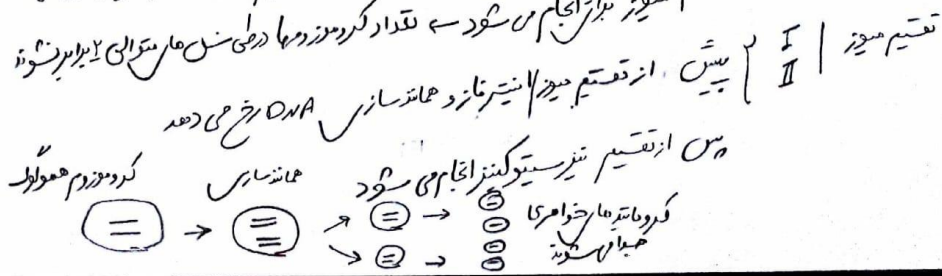 میوز برای انجام می شود سه تعداد کروموزوم ها در طی نسل های متوالی ۲ برابر نشوند
تقسیم میوز I II پیش از تقسیم میوز اینترفاز و همانندسازی DNA رخ می دهد
پس از تقسیم نیز سیتوکینز انجام می شود
کروموزوم همولوگ همانندسازی
کروماتیدهای خواهری
جدا می شوند